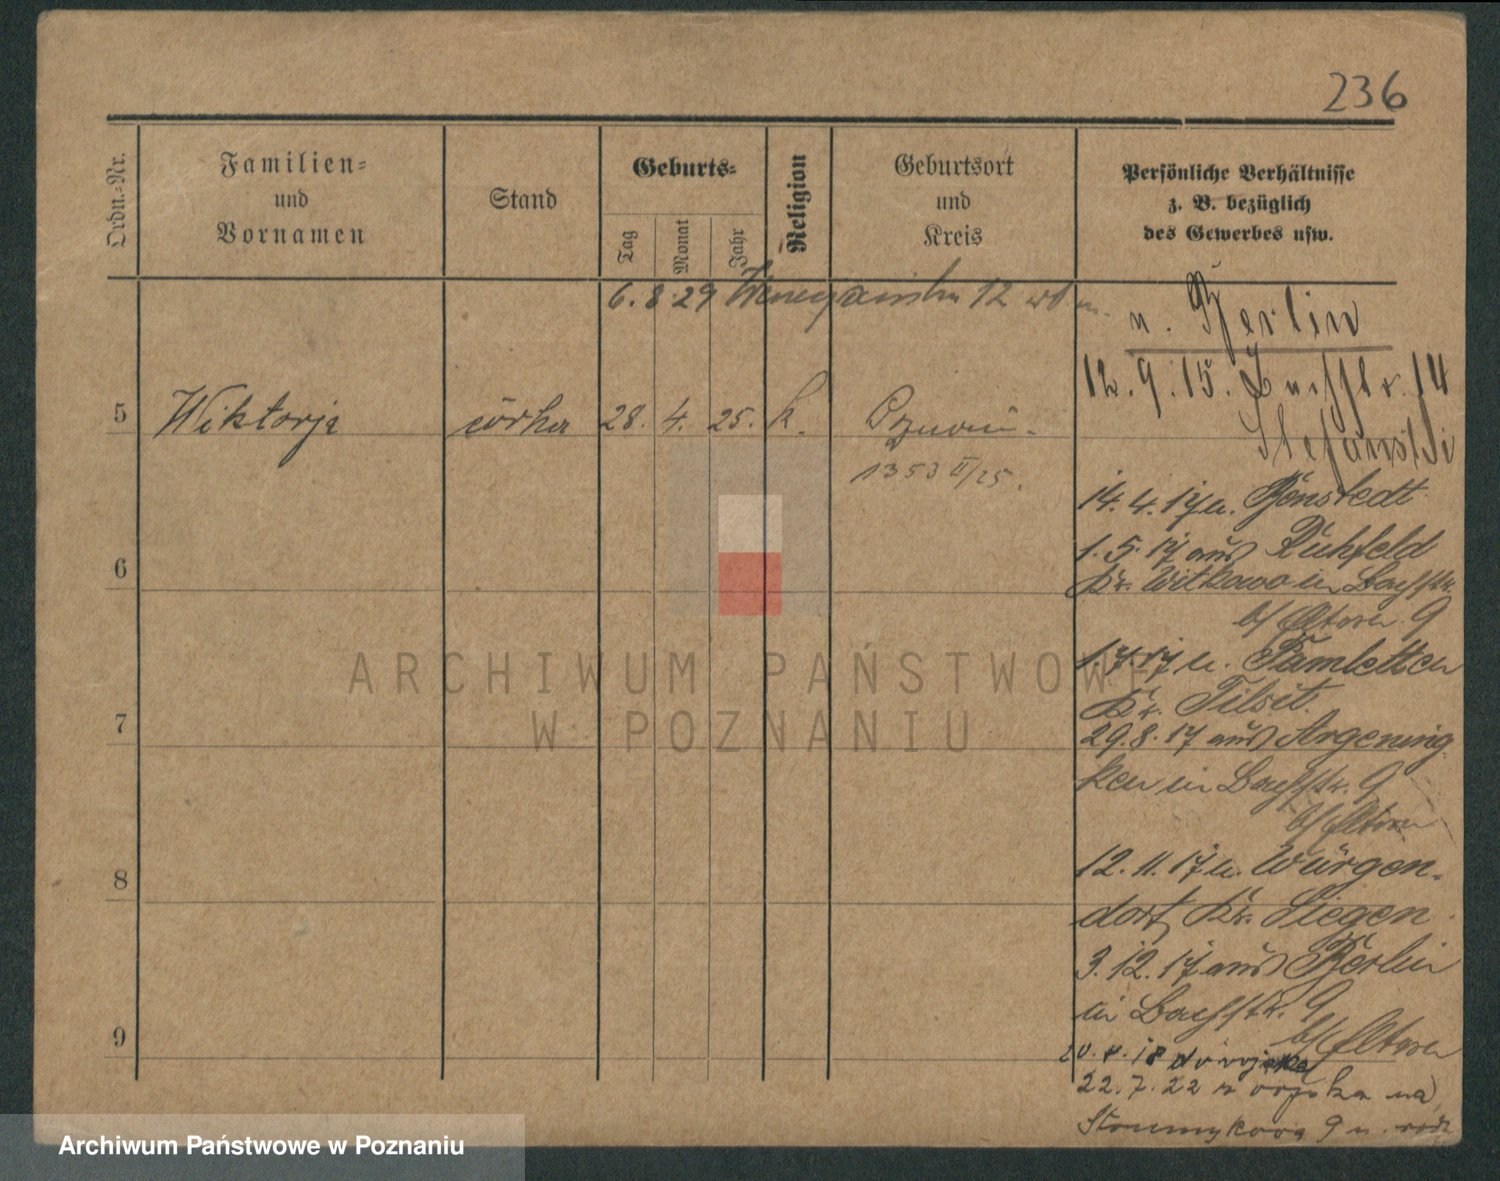 236
Ordn.-Nr.
Familien-
und
Vornamen
Stand
Geburts-
Tag
Monat
Jahr
Religion
Geburtsort
und
Kreis
Persönliche Verhältnisse
z. B. bezüglich
des Gewerbes usw.
6. 8. 29 12
n. Berlin
12. 9. 15. 14
Stefanski
5 Wiktorja córka 28. 4. 25. k. Poznań.
1353 II/25.
14. 4. 17 n. Bönstedt
1. 5. 17 aus Ruhfeld
Kr. Witkowo in Bachstr.
b/ Eltern 9
1.7.17 n. Pamletten
Kr. Tilsit.
29. 8. 17 aus Argening
ken in Bachstr. 9
b/ Eltern
12. 11. 17 n. Würgen-
dorf, Kr. Siegen
3. 12. 17 aus Berlin
in Bachstr. 9
b/ Eltern
18 do wojska
22. 7. 22 z wojska na
Strumykowa 9 u. rodz
6
7
8
9
ARCHIWUM PAŃSTWOWE
W POZNANIU
Archiwum Państwowe w Poznaniu